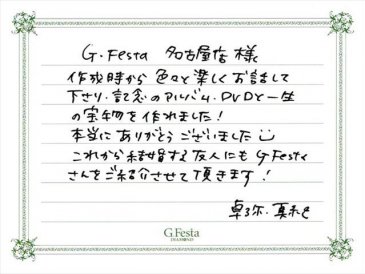 G.Festa 名古屋店 様
作成時から色々と楽しくお話して
下さり、記念のアルバム・DVDと一生
の宝物を作れました!
本当にありがとうございました
これから結婚する友人にも G Festa
さんをご紹介させて頂きます!
卓弥・真和
G.Festa
DIAMOND